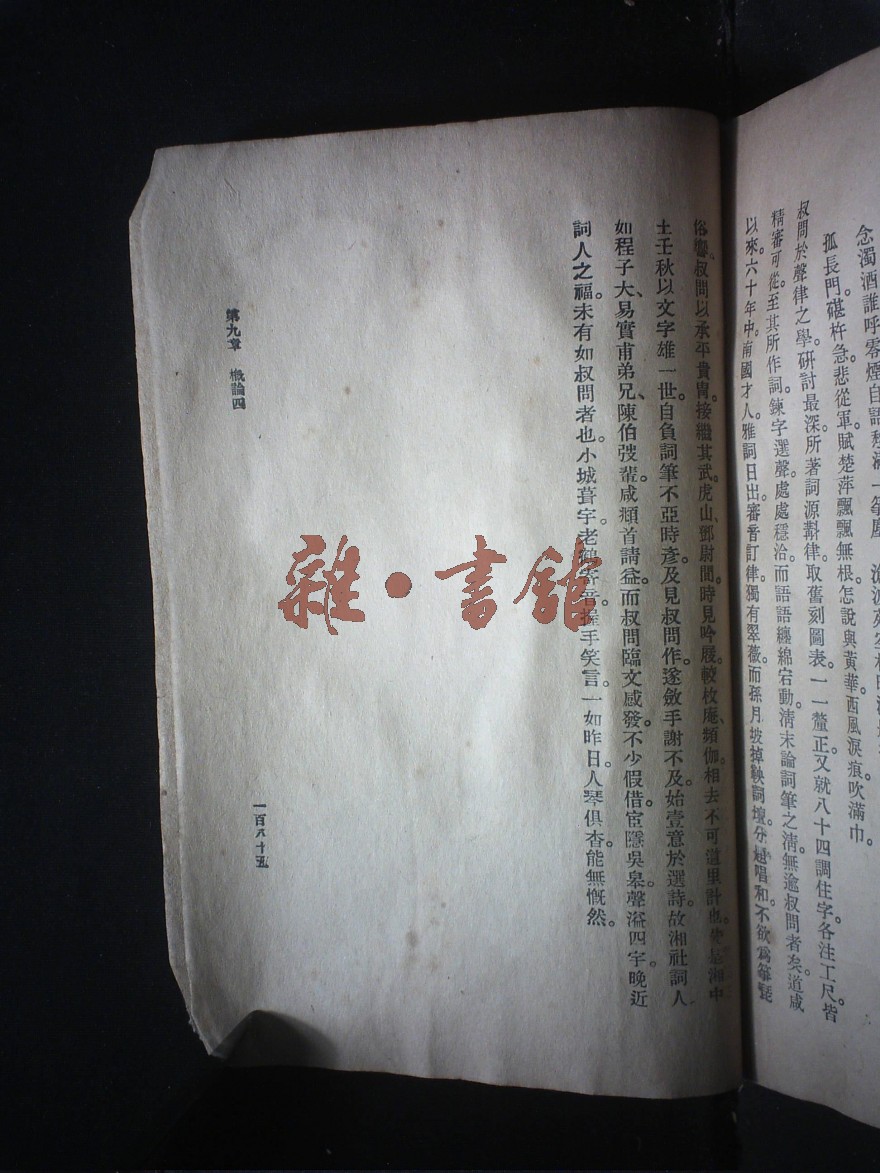 念濁酒誰呼零煙自語
孤長門碪杵急悲從軍。賦楚萍飄飄無根。怎說與黃華西風淚痕吹滿巾。
叔問於聲律之學。研討最深。所著詞源斠律。取舊刻圖表。一一釐正。又就八十四調住字。各注工尺。皆
精審可從。至其所作詞。鍊字選聲。處處穩洽。而語語纏綿宕動。清末論詞筆之清。無逾叔問者矣。道咸
以來。六十年中。南國才人。雅詞日出。審音訂律。獨有翠薇。而孫月坡掉鞅詞壇。分題唱和。不欲爲箏琵
俗響。叔問以承平貴冑。接繼其武。虎山、鄧尉間。時見吟屐。較枚庵、頻伽。相去不可道里計也。先是湘中
土壬秋以文字雄一世。自負詞筆不亞時彥。及見叔問作。遂斂手謝不及。始壹意於選詩。故湘社詞人。
如程子大、易實甫弟兄、陳伯弢輩。咸頫首請益。而叔問臨文感發。不少假借。宦隱吳皋。聲溢四宇。晚近
詞人之福。未有如叔問者也。小城葺宇。老鶴 音。握手笑言。一如昨日。人琴俱杳。能無慨然。
第九章　概論四
一百八十五
雜·書館